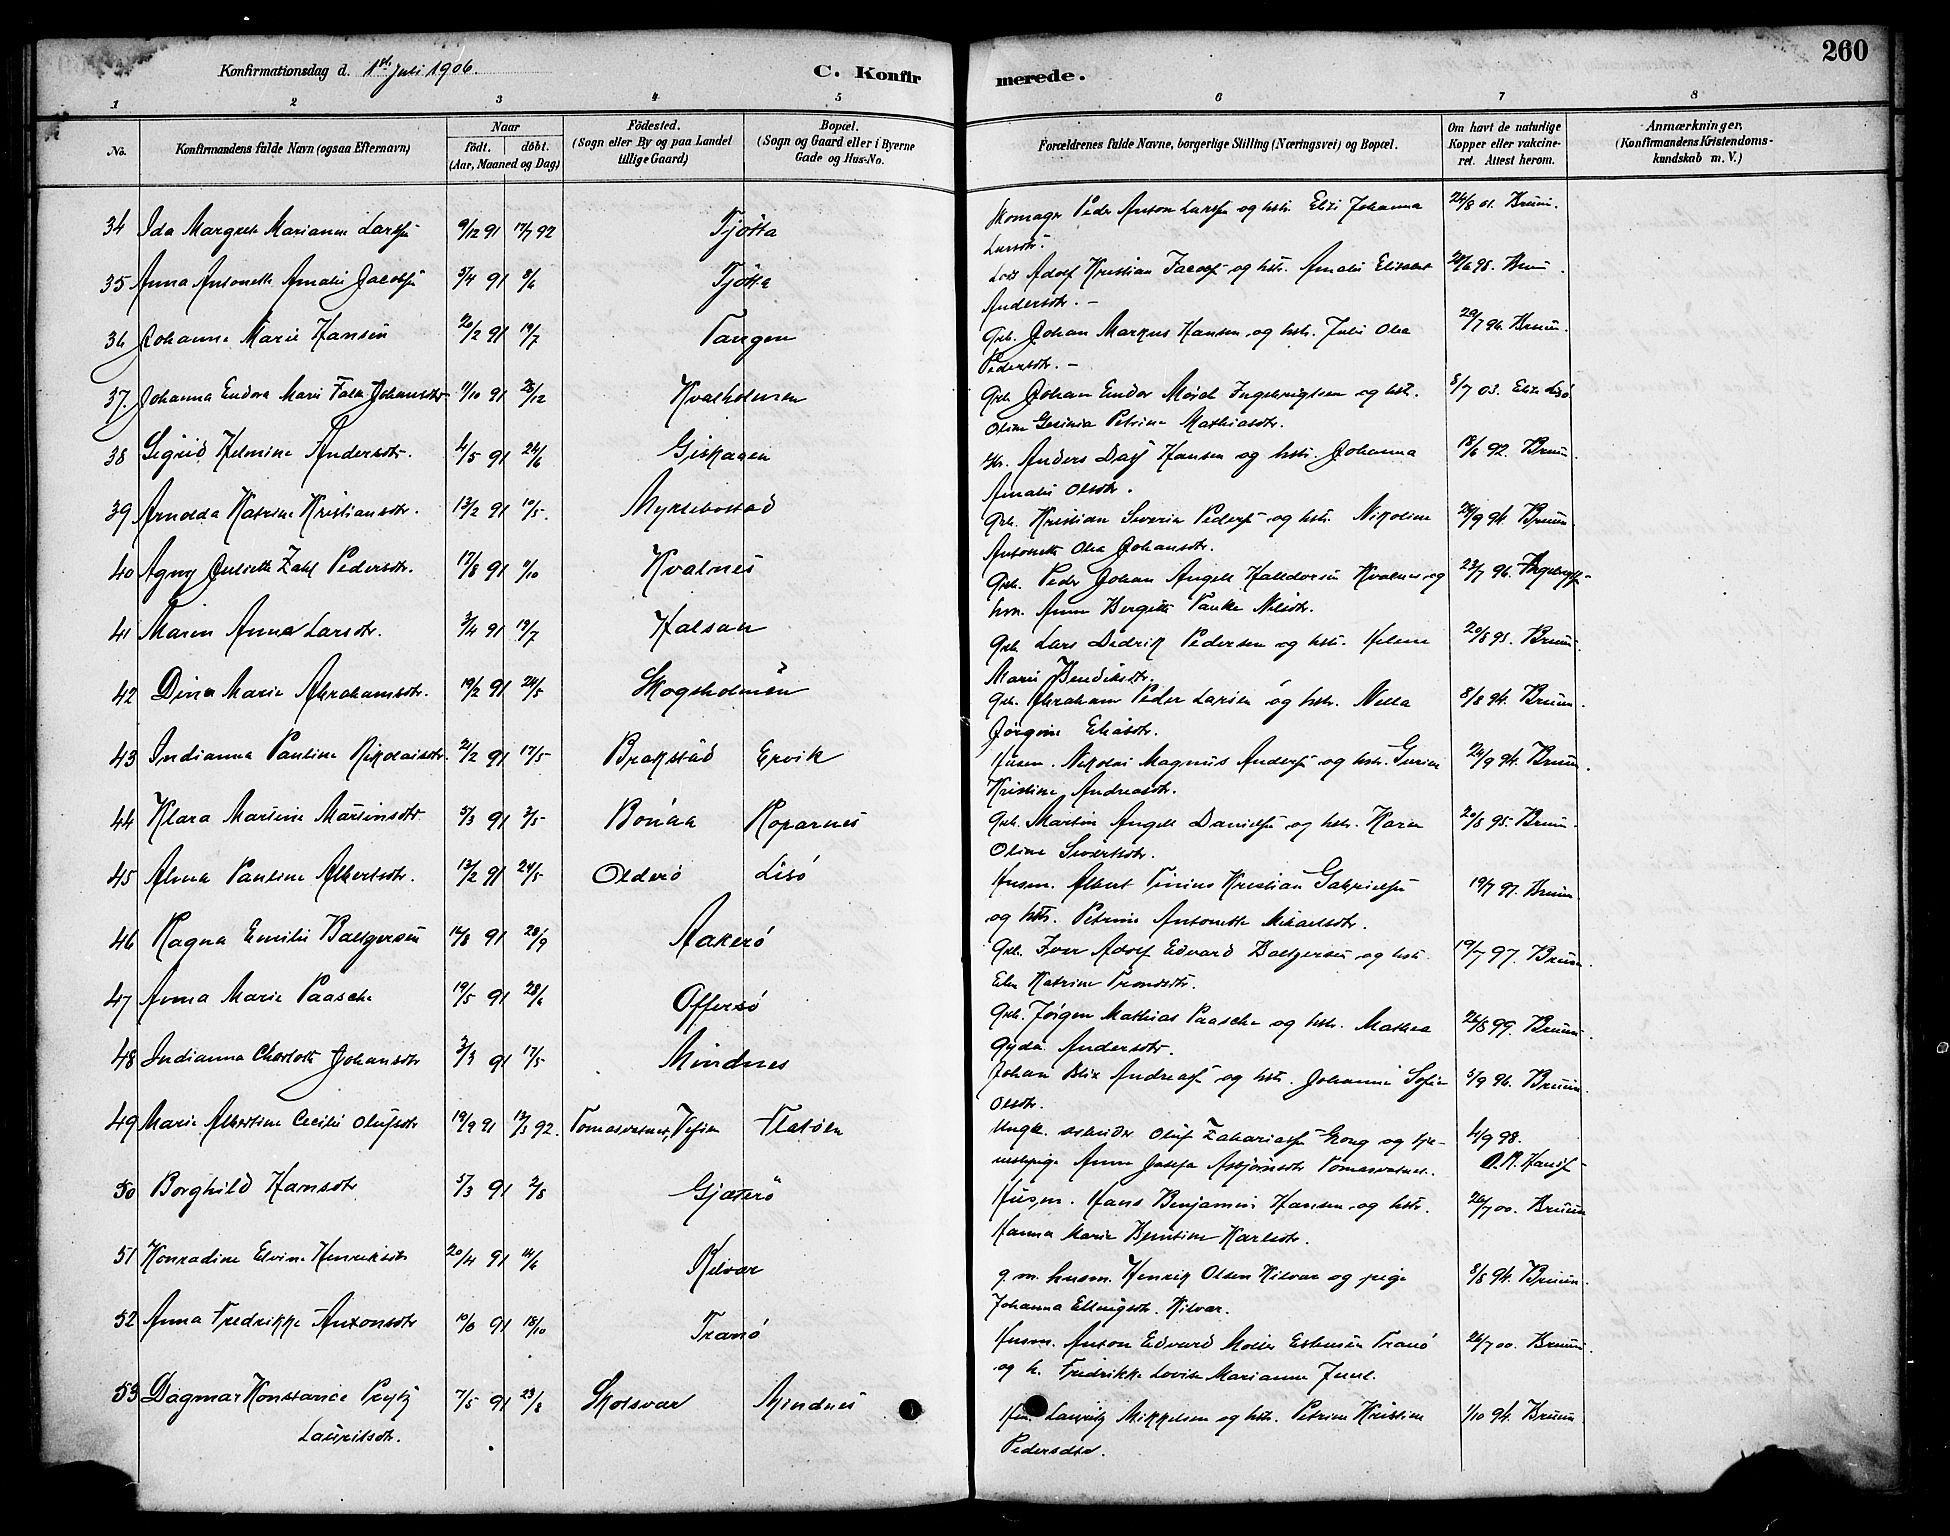 260
Konfirmationsdag d. 1ste Juli 1906.
C. Konfirmerede.
1 2 3 4 5 6 7 8
No.
Konfirmandens fulde Navn (ogsaa Efternavn)
Naar
födt. döbt.
(Aar, Maaned og Dag)
Födested.
(Sogn eller By og paa Landet
tillige Gaard)
Bopæl.
(Sogn og Gaard eller i Byerne
Gade og Hus-No.
Forældrenes fulde Navne, borgerlige Stilling (Næringsvei) og Bopæl.
Om havt de naturlige
Kopper eller vakcine-
ret. Attest herom.
Anmærkninger,
(Konfirmandens Kristendoms-
kundskab m. V.)
34 Ida Margrete Marianne Larsen 9/12 91 17/7 92 Tjötta Skomager Peder Anton Larsen og hstr. Elzi Johanna 24/8 01. Bruun.
Larsdtr.
35 Anna Antonette Amalie Jacobsen 5/4 91 8/6 Tjötta Adolf Kristian Jacobsen og hstr. Amalie Elisabet 20/6 98. Bruun.
Andersdtr. –
36 Johanne Marie Hansen 20/2 91 19/7 Tangen Grb. Johan Markus Hansen og hstr. Julie Oha 29/7 96. Bruun.
Pedersdtr. –
37. Johanna Endora Marie Falk Johansdtr 11/10 91 28/12 Kvalholmen Grb. Johan Endor Mörch Ingebrigtsen og hst. 8/7 03. Lisö
Oline Gurinia Petrine Mathiasdtr.
38 Sigrid Helmine Andersdtr. 4/5 91 24/6 Giskagen Anders Dass Hansen og hstr. Johanna 18/6 92. Bruun.
Amalie Olsdtr.
39 Arnolda Katrine Kristiansdtr. 13/2 91 10/5. Myklebostad Grb. Kristian Severin Pedersen og hstr. Nikoline 24/9 94. Bruun.
Antonette Oha Johansdtr.
40 Agny Juliette Zahl Pedersdtr. 17/8 91 11/10 Kvalnes Grb. Peder Johan Angell Halldorsen Kvalnes og 23/7 96.
hm. Anne Bergitte Tanke Nilsdtr.
41 Maren Anna Larsdtr. 3/4 91 19/7 Halsan Grb. Lars Didrik Pedersen og hstr. Helene 20/8 95. Bruun.
Marie Bendiksdtr.
42 Dina Marie Abrahamsdtr. 19/2 91 24/5 Skogsholmen Grb. Abraham Peder Larsen og hstr. Nella 8/8 94. Bruun.
Jörgine Eliasdtr.
43 Indianna Pauline Nikolaisdtr. 21/2 91 17/5 Brakstad Ervik Husm. Nikolai Magnus Andersen og hstr. Gurine 24/9 94. Bruun.
Kristine Andreasdtr.
44 Klara Martine Martinsdtr 5/3 91 3/5 Bönaa Koparnes Grb. Martin Angell Danielsen og hstr. Karen 20/8 95. Bruun.
Oline Sivertsdtr.
45 Alma Pauline Albertsdtr. 13/2 91 24/5 Olderö Lisö Husm. Albert Tinius Kristian Gabrielsen 19/7 97. Bruun.
og hstr. Petrine Antonette Mikaelsdtr.
46 Ragna Emilie Baltzersen 14/8 91 20/9 Aakerö Grb. Iver Adolf Edvard Baltzersen og hstr. 19/7 97. Bruun.
Elen Katrine Trondsdtr.
47 Anna Marie Paasche 19/5 91 28/6 Offersö Grb. Jörgen Mathias Paasche og hstr. Mathea 26/8 99. Bruun.
Gyda Andersdtr.
48 Indianna Charlotte Johansdtr 3/3 91 17/5 Mindnes Johan Blix Andreassen og hstr. Johanne Sofie 5/9 96. Bruun.
Olsdtr.
49 Marie Albertine Cecilie Olufsdtr 19/9 91 13/3 92. Tomasvatnet, Vefsen Flatöen Ungk. arbeider Oluf Zakariassen og tje- 4/9 98.
nestepige Anne Josefa Asbjörnsdtr Tomasvatnet.
50 Borghild Hansdtr. 5/3 91 2/8 Gjæterö Husm. Hans Benjamin Hansen og hstr. 26/7 00. Bruun
Hanna Marie Berntine Karlsdtr.
51 Konradine Elvine Henriksdtr 20/4 91 14/6 Kilvær g. m. husm. Henrik Olsen Kilvær og pige 8/8 94. Bruun.
Johanna Ellingsdtr. Kilvær.
52 Anna Fredrikke Antonsdtr 10/8 91 18/10 Tranö Husm. Anton Edvard Moller Estensen Tranö 26/7 00. Bruun.
og h. Fredrikke Lovise Marianne Juul.
53 Dagmar Konstance Prytz 7/5 91 23/8 Skolsvær Mindnes Lauritz Mikkelsen og hstr. Petrine Kristine 1/10 94. Bruun.
Lauritsdtr. Pedersdtr.